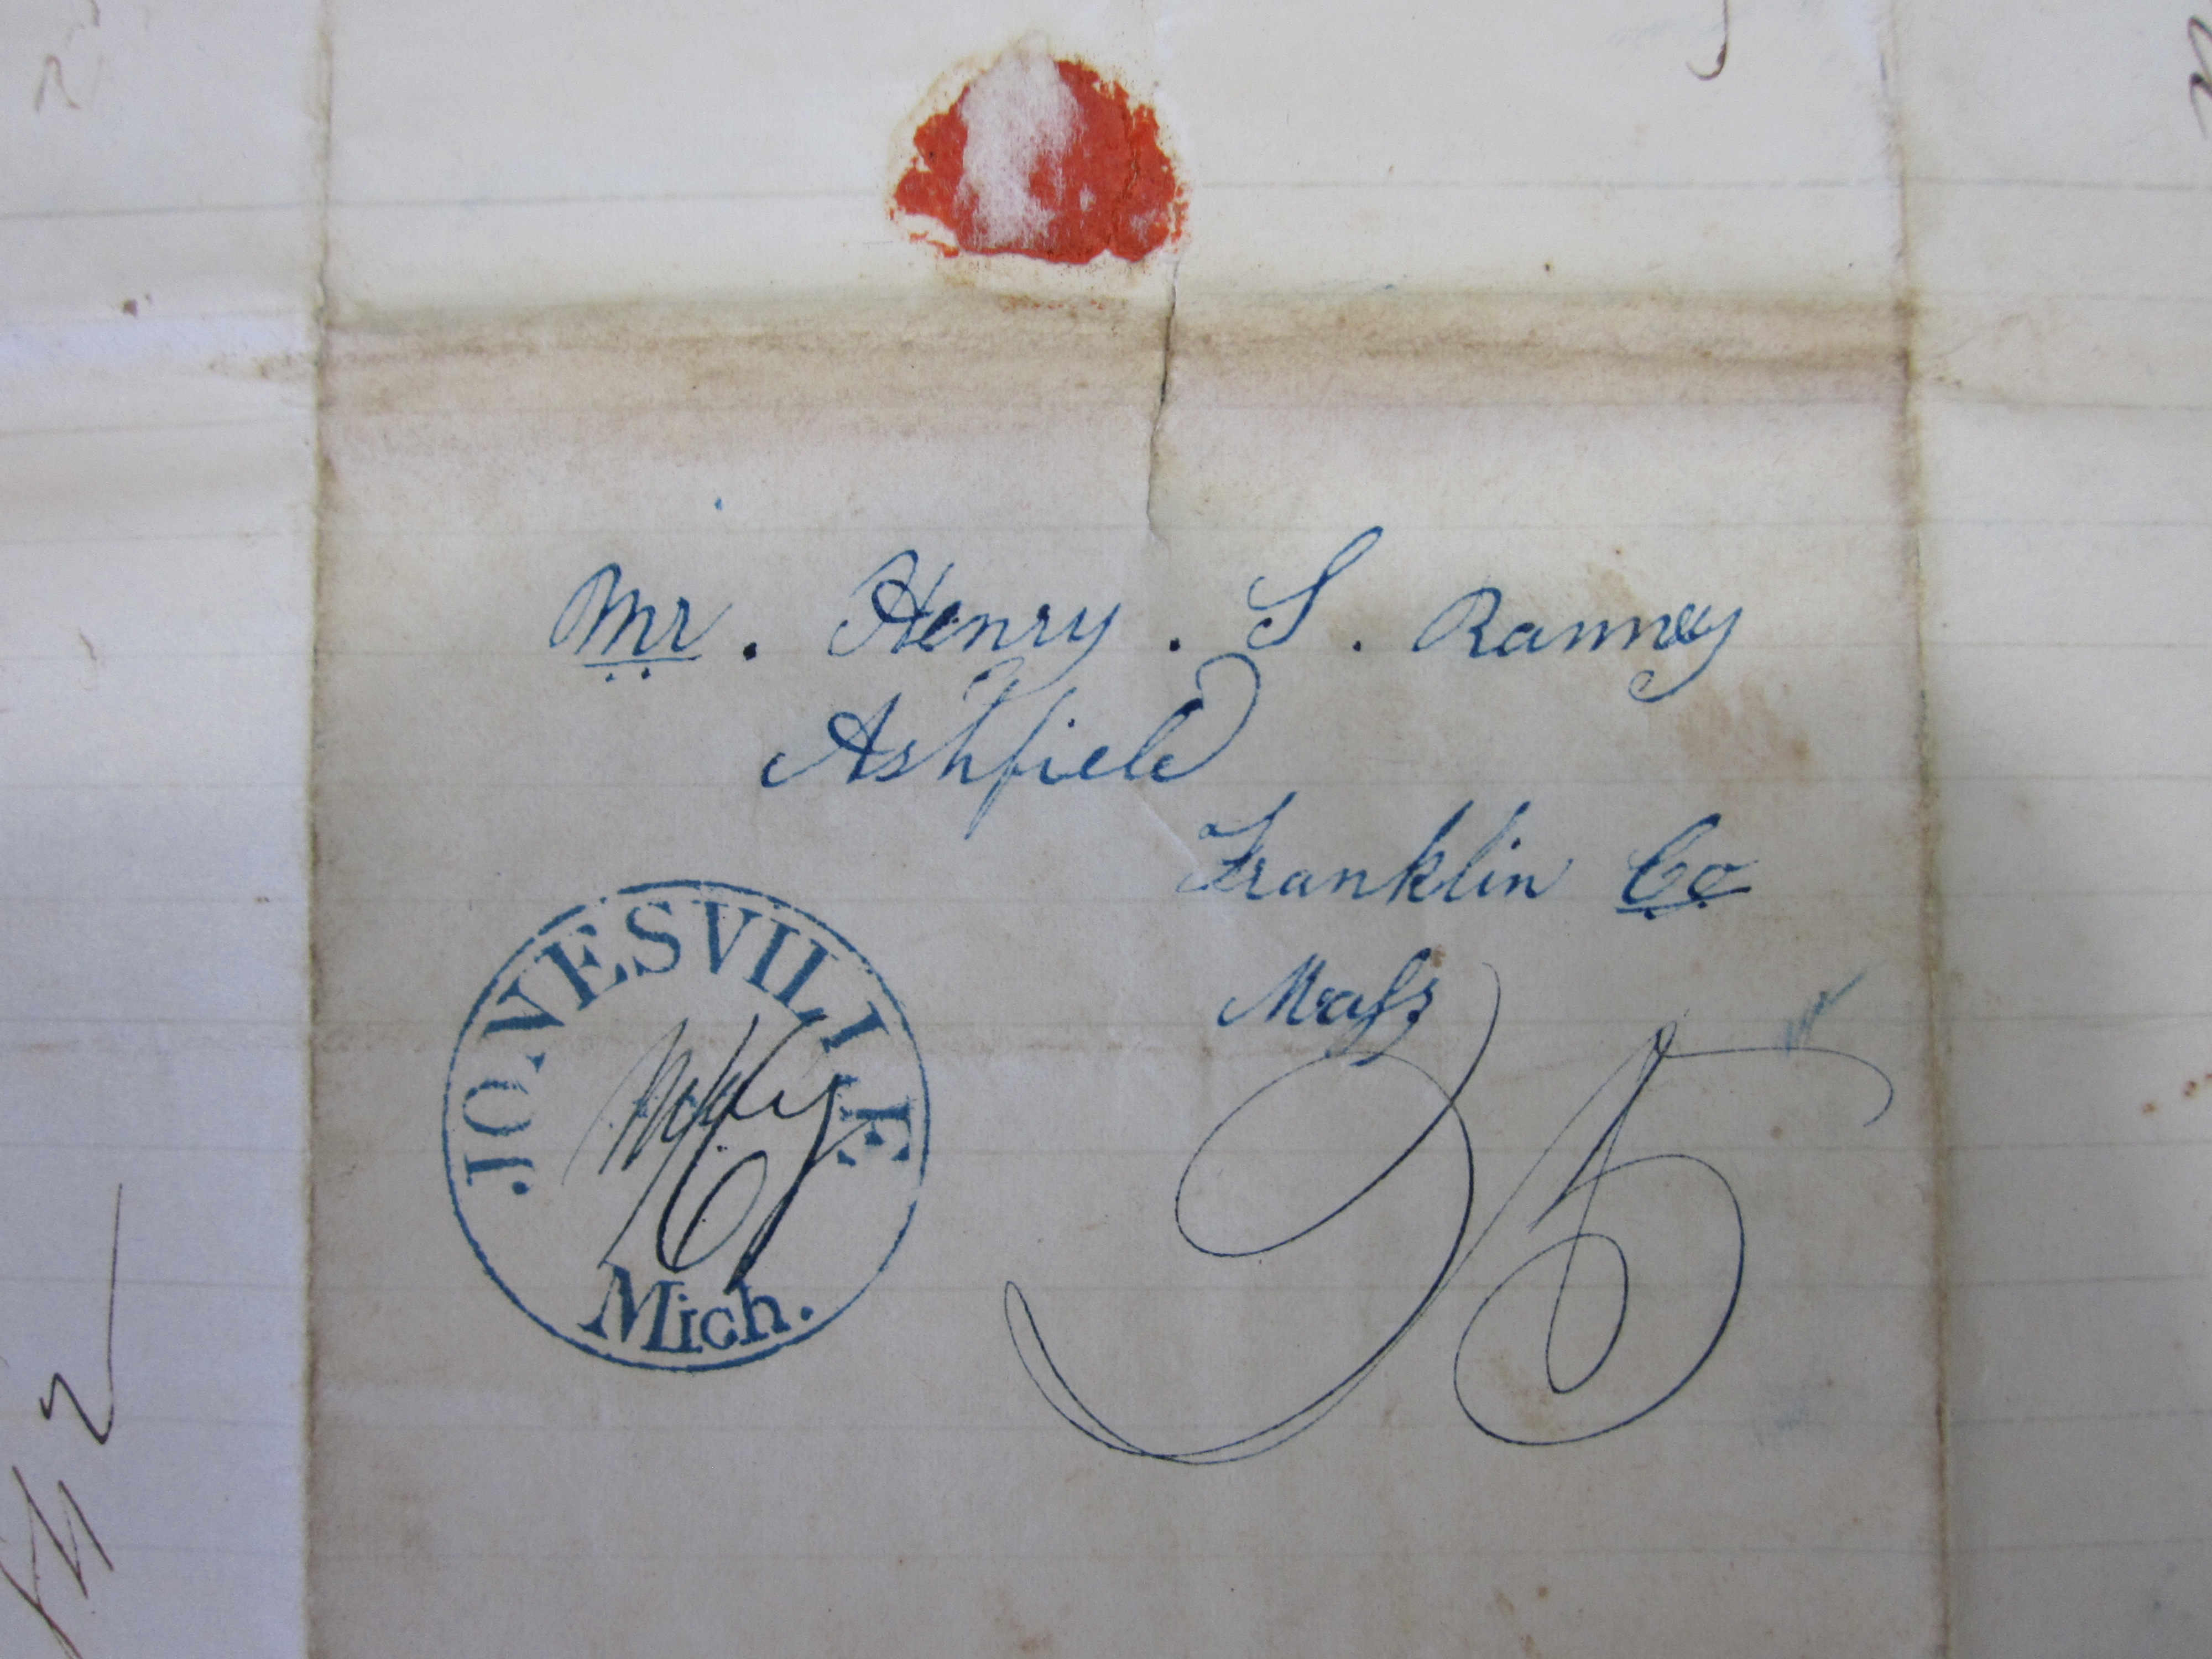 Mr. Henry. S. Ranney
Ashfield
Franklin Co
Mass
JONESVILLE
Mich.
25